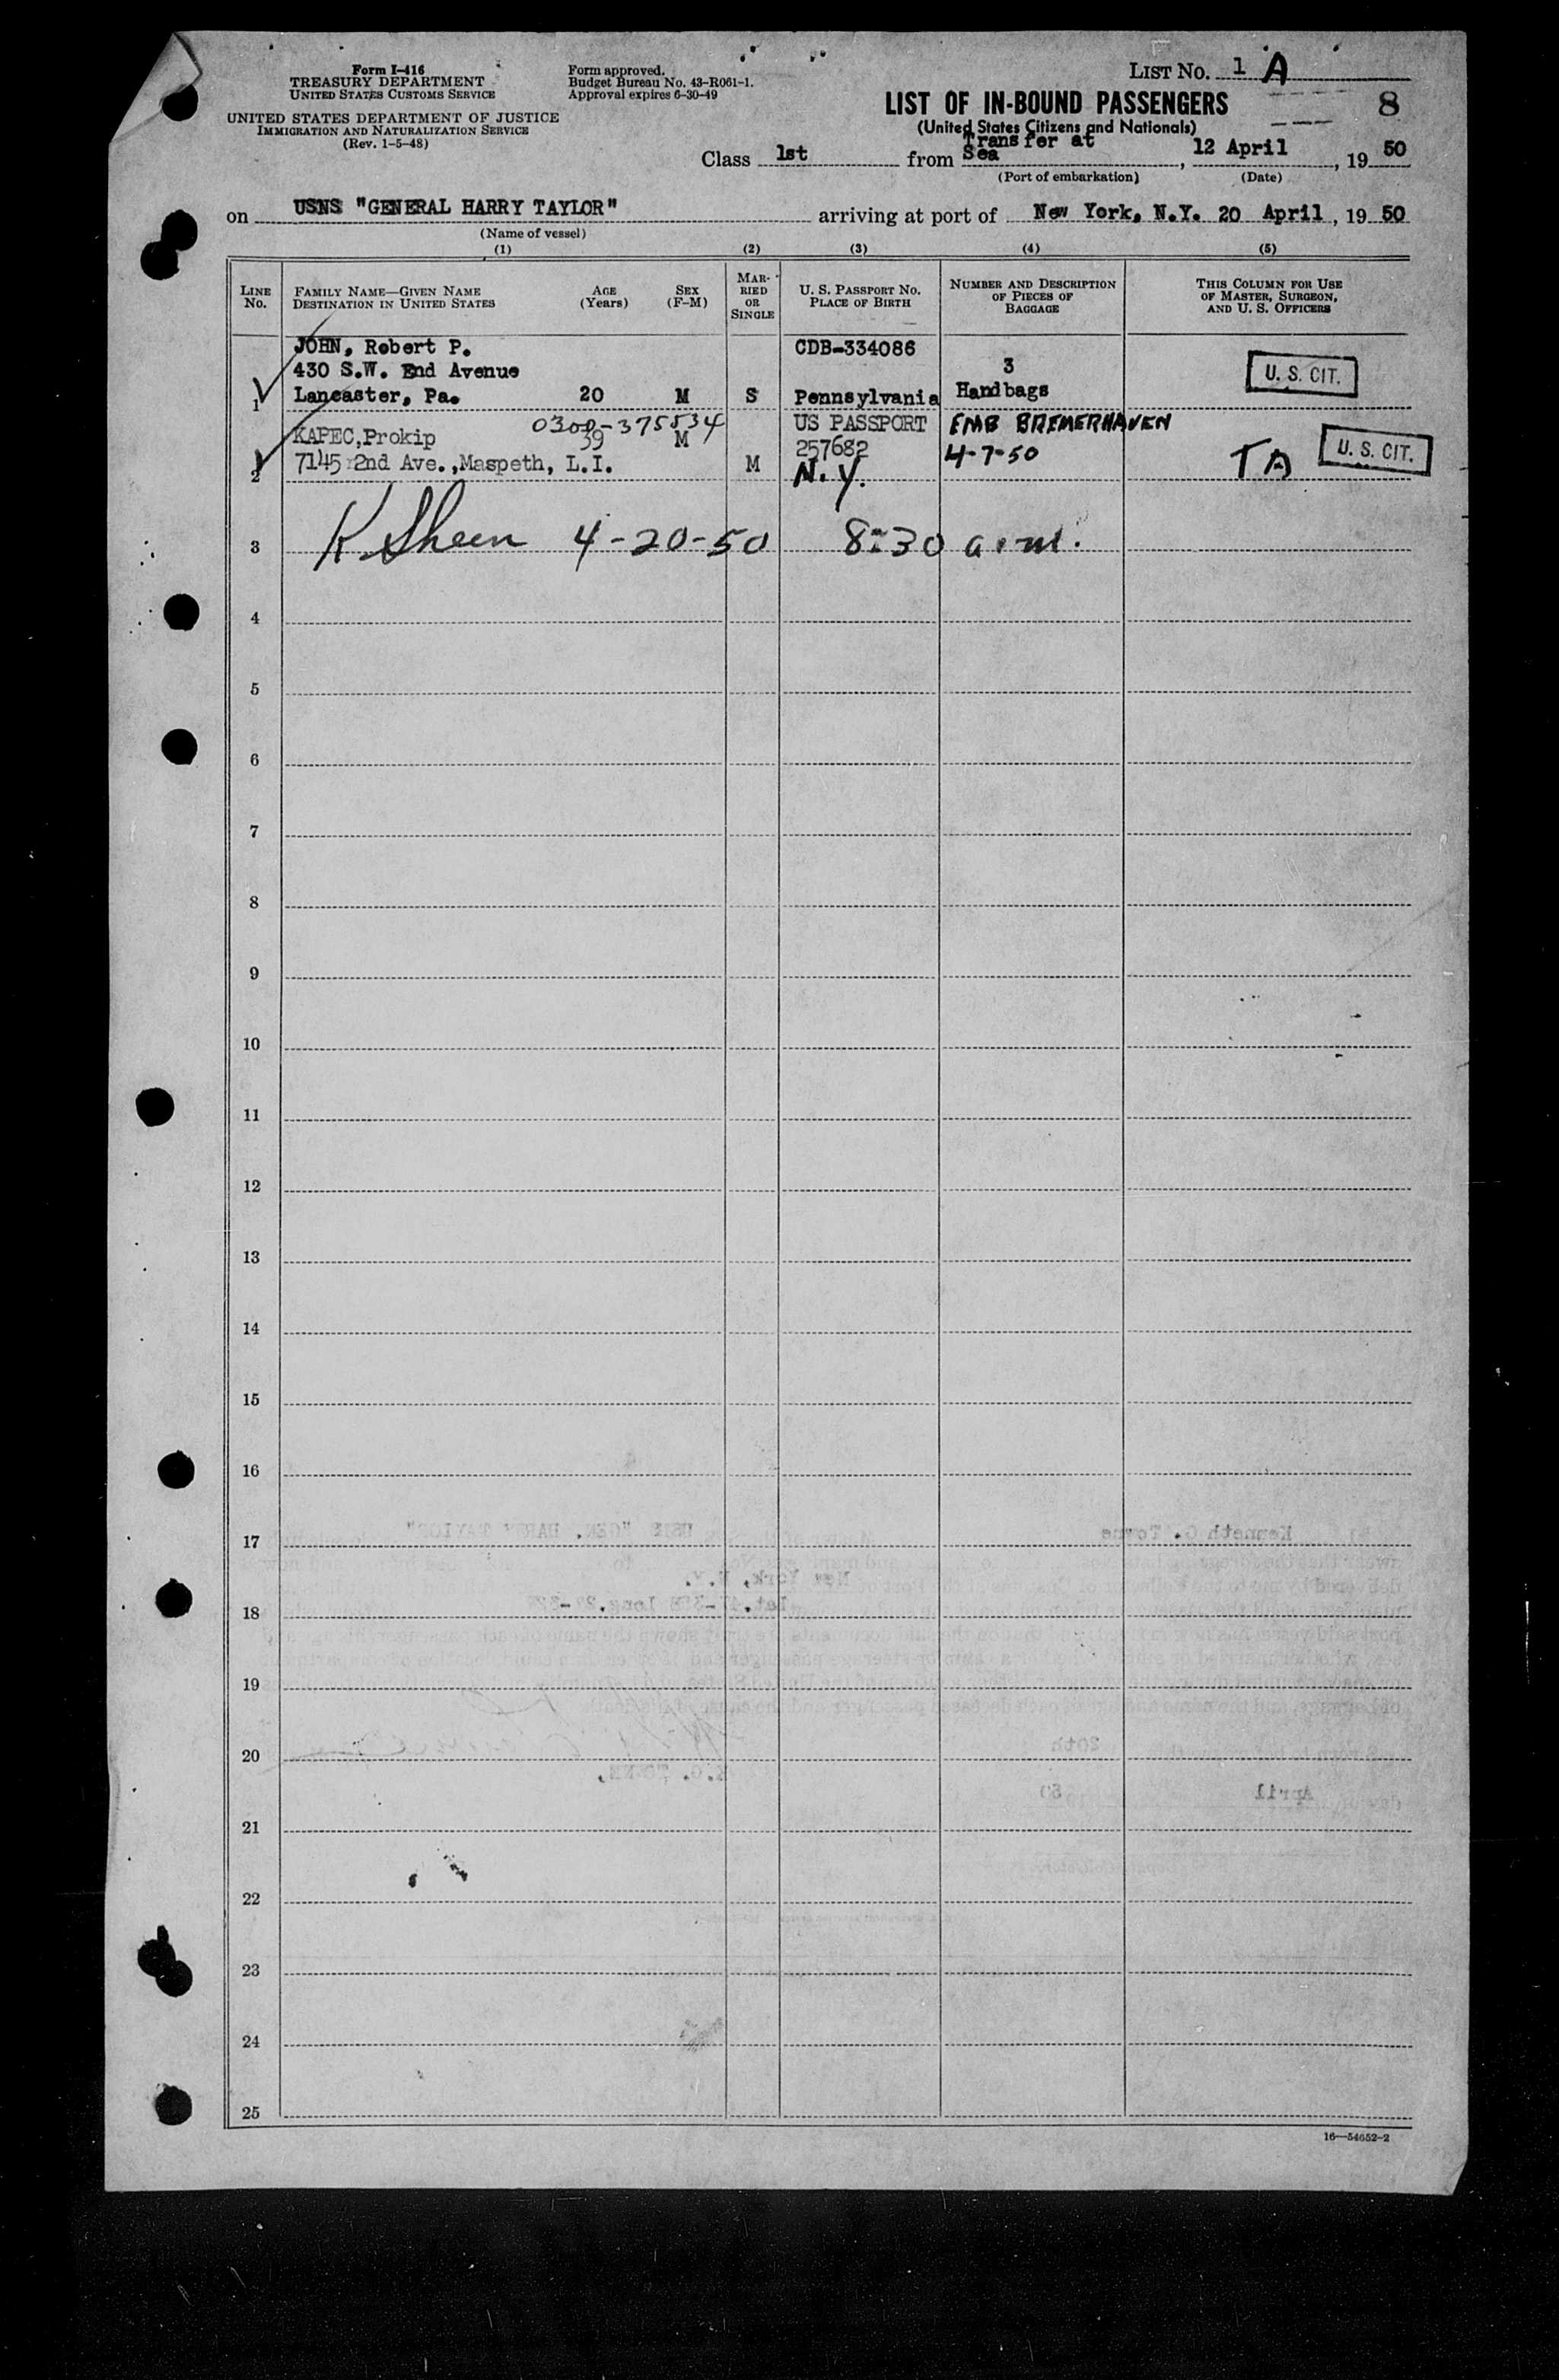 Form I-416
TREASURY DEPARTMENT
UNITED STATES CUSTOMS SERVICE
UNITED STATES DEPARTMENT OF JUSTICE
IMMIGRATION AND NATURALIZATION SERVICE
(Rev. 1-5-48)
Form approved.
Budget Bureau No. 43-R061-1.
Approval expires 6-30-49
LIST NO. 1 A
8
LIST OF IN-BOUND PASSENGERS
(United States Citizens and Nationals)
Class 1st from Transfer at Sea, 12 April, 19 50
(Port of embarkation) (Date)
on USNS "GENERAL HARRY TAYLOR" arriving at port of New York, N.Y. 20 April, 19 50
(Name of vessel)
(1) (2) (3) (4) (5)
LINE No.
FAMILY NAME—GIVEN NAME
DESTINATION IN UNITED STATES
AGE (Years)
SEX (F-M)
MARRIED OR SINGLE
U. S. PASSPORT NO.
PLACE OF BIRTH
NUMBER AND DESCRIPTION OF PIECES OF BAGGAGE
THIS COLUMN FOR USE OF MASTER, SURGEON, AND U. S. OFFICERS
JOHN, Robert P. CDB-334086
430 S.W. End Avenue 3
1 Lancaster, Pa. 20 M S Pennsylvania Handbags U. S. CIT.
0300-375534 US PASSPORT EMB BREMERHAVEN
KAPEC, Prokip 39 M 257682 4-7-50
2 7145 2nd Ave., Maspeth, L.I. M N.Y. TA U. S. CIT.
3 K Sheen 4-20-50 8:30 a.m.
4
5
6
7
8
9
10
11
12
13
14
15
16
17
18
19
20
21
22
23
24
25
16—54652-2